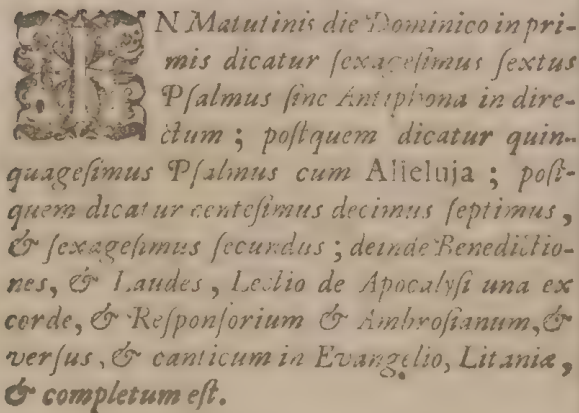 IN Matutinis die Dominico in pri-
mis dicatur ſexageſimus ſextus
Pſalmus ſine Antiphona in dire-
ctum ; poſtquem dicatur quin-
quageſimus Pſalmus cum Alleluja ; poſt-
quem dicatur centeſimus decimus ſeptimus ,
& ſexageſimus ſecundus ; deinde Benedictio-
nes, & Laudes , Lectio de Apocalyſi una ex
corde, & Reſponſorium & Ambroſianum, &
verſus , & canticum in Evangelio, Litaniæ ,
& completum eſt.